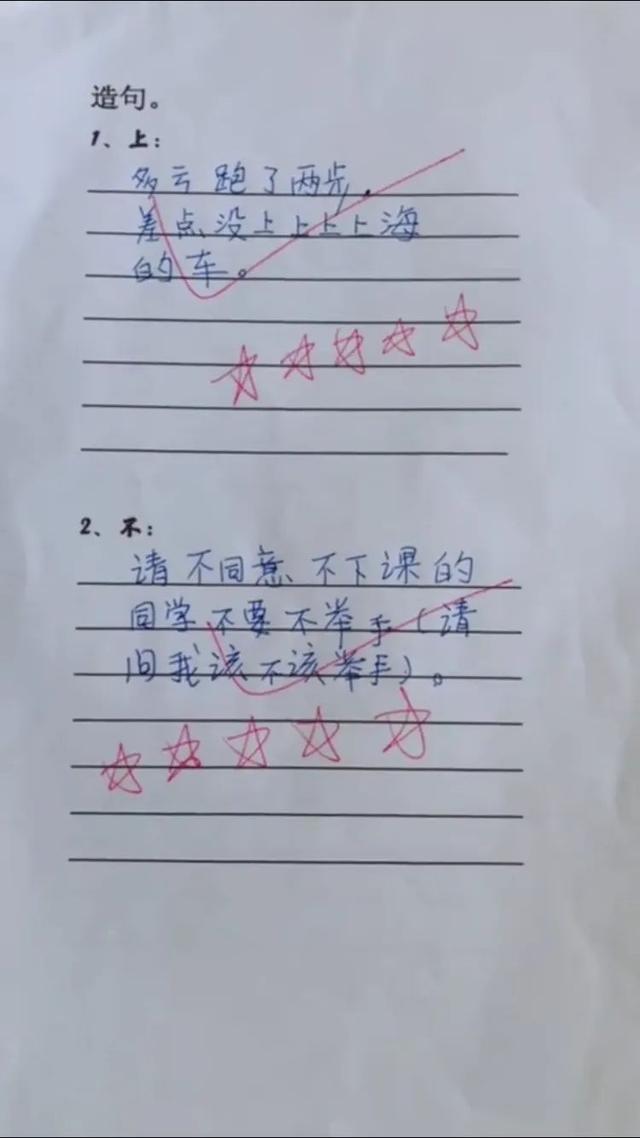 造句。
1、上：
多云跑了两步，
差点没上上上上海
的车。
2、不：
请不同意不下课的
同学不要不举手（请
问我该不该举手）。